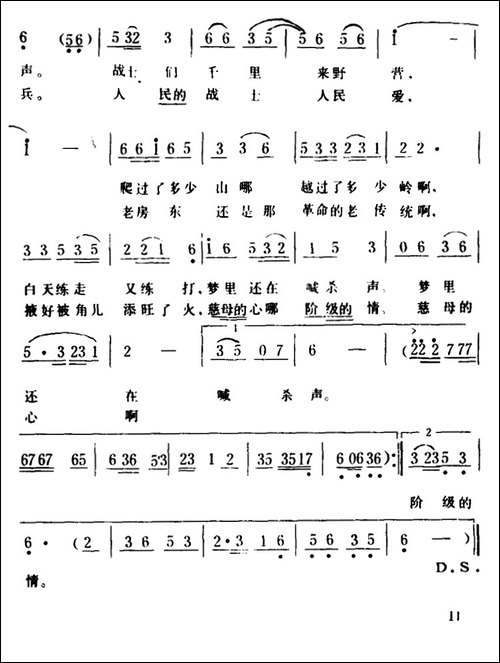 6 (56) | 532 3 | 66 35 | 56 56 | i — |
声。 战士 们 千 里 来野 营，
兵。 人 民的 战 士 人民 爱，
i — | 66i65 | 33 6 | 533231 | 22· |
爬过了多少 山哪 越过了多少 岭啊，
老房 东 还是那 革命的老 传 统啊，
33535 | 221 6 | i6 532 | 15 3 | 06 36 |
白天练走 又练 打，梦里 还在 喊杀 声 梦里
掖好被角儿 添旺了 火，慈母的心哪 阶级的 情、慈母的
5·3231 | 2 — | 35 07 | 6 — | (222777 |
还 在 喊 杀 声。
心 啊
6767 65 | 636 53 | 23 12 | 35 3517 | 60636):‖ 2 32353 |
阶 级的
6· (2 | 36 53 | 2·3 16 | 56 35 | 6 —) |
D.S.
情。
11